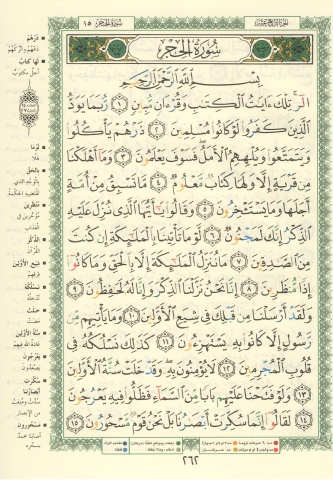 الجزء الرابع عشر
سورة الحجر ١٥
سورة الحجر
بسم الله الرحمن الرحيم
الر تلك ءايت الكتب وقرءان مبين ١ ربما يود
الذين كفروا لو كانوا مسلمين ٢ ذرهم يأكلوا
ويتمتعوا ويلههم الأمل فسوف يعلمون ٣ وما أهلكنا
من قرية إلا ولها كتاب معلوم ٤ ما تسبق من أمة
أجلها وما يستـخرون ٥ وقالوا يأيها الذى نزل عليه
الذكر إنك لمجنون ٦ لو ما تأتينا بالملئكة إن كنت
من الصدقين ٧ ما ننزل الملئكة إلا بالحق وما كانوا
إذا منظرين ٨ إنا نحن نزلنا الذكر وإنا له لحفظون ٩
ولقد أرسلنا من قبلك فى شيع الأولين ١٠ وما يأتيهم من
رسول إلا كانوا به يستهزءون ١١ كذلك نسلكه فى
قلوب المجرمين ١٢ لا يؤمنون به وقد خلت سنة الأولين
١٣ ولو فتحنا عليهم بابا من السماء فظلوا فيه يعرجون
١٤ لقالوا إنما سكرت أبصرنا بل نحن قوم مسحورون ١٥
ذرهم
لها كتاب
أجل مكتوب
لو ما
هلا
بالحق
منظرين
الذكر
القرآن
شيع الأولين
فرقهم
نسلكه
ندخله
خلت
مضت
سنة الأولين
يعرجون
يصعدون
سكرت أبصارنا
مسحورون
٢٦٢